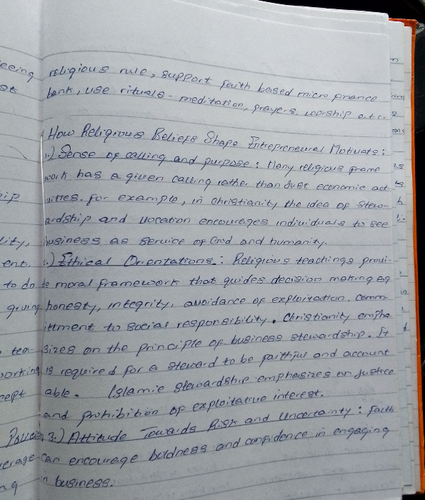 religious rule, support faith based micro finance
bank, use rituals - meditation, prayers, worship
How Religious Beliefs Shape Entrepreneurial Motivats:
Sense of calling and purpose: Many religious frame
work has a given calling rather than just economic act
ivities. For example, in christianity the idea of stew-
ardship and vocation encourages individuals to see
business as service of God and humanity.
Ethical Orientations: Religious teachings provi-
de moral framework that guides decision making eg
honesty, integrity, avoidance of exploitation, comm-
ittment to social responsibility. Christianity empha
sizes on the principle of business stewardship. It
is required for a steward to be faithful and account
able. Islamic stewardship emphasizes on justice
and prohibition of exploitative interest.
3.) Attitude Towards Risk and Uncertainty: Faith
can encourage boldness and confidence in engaging
in business.